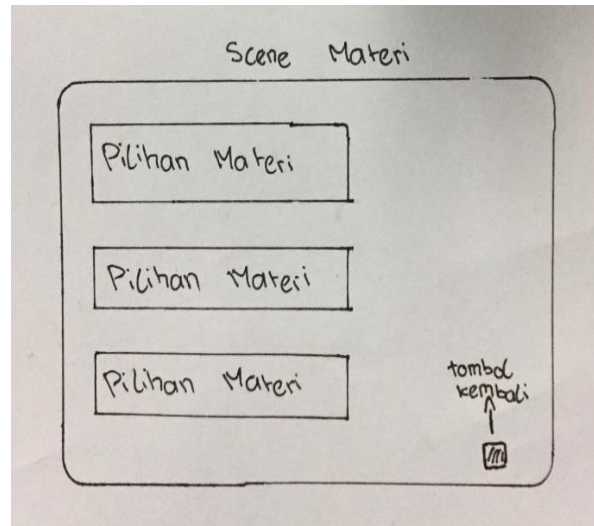 Scene Materi
Pilihan Materi
Pilihan Materi
Pilihan Materi
tombol
kembali